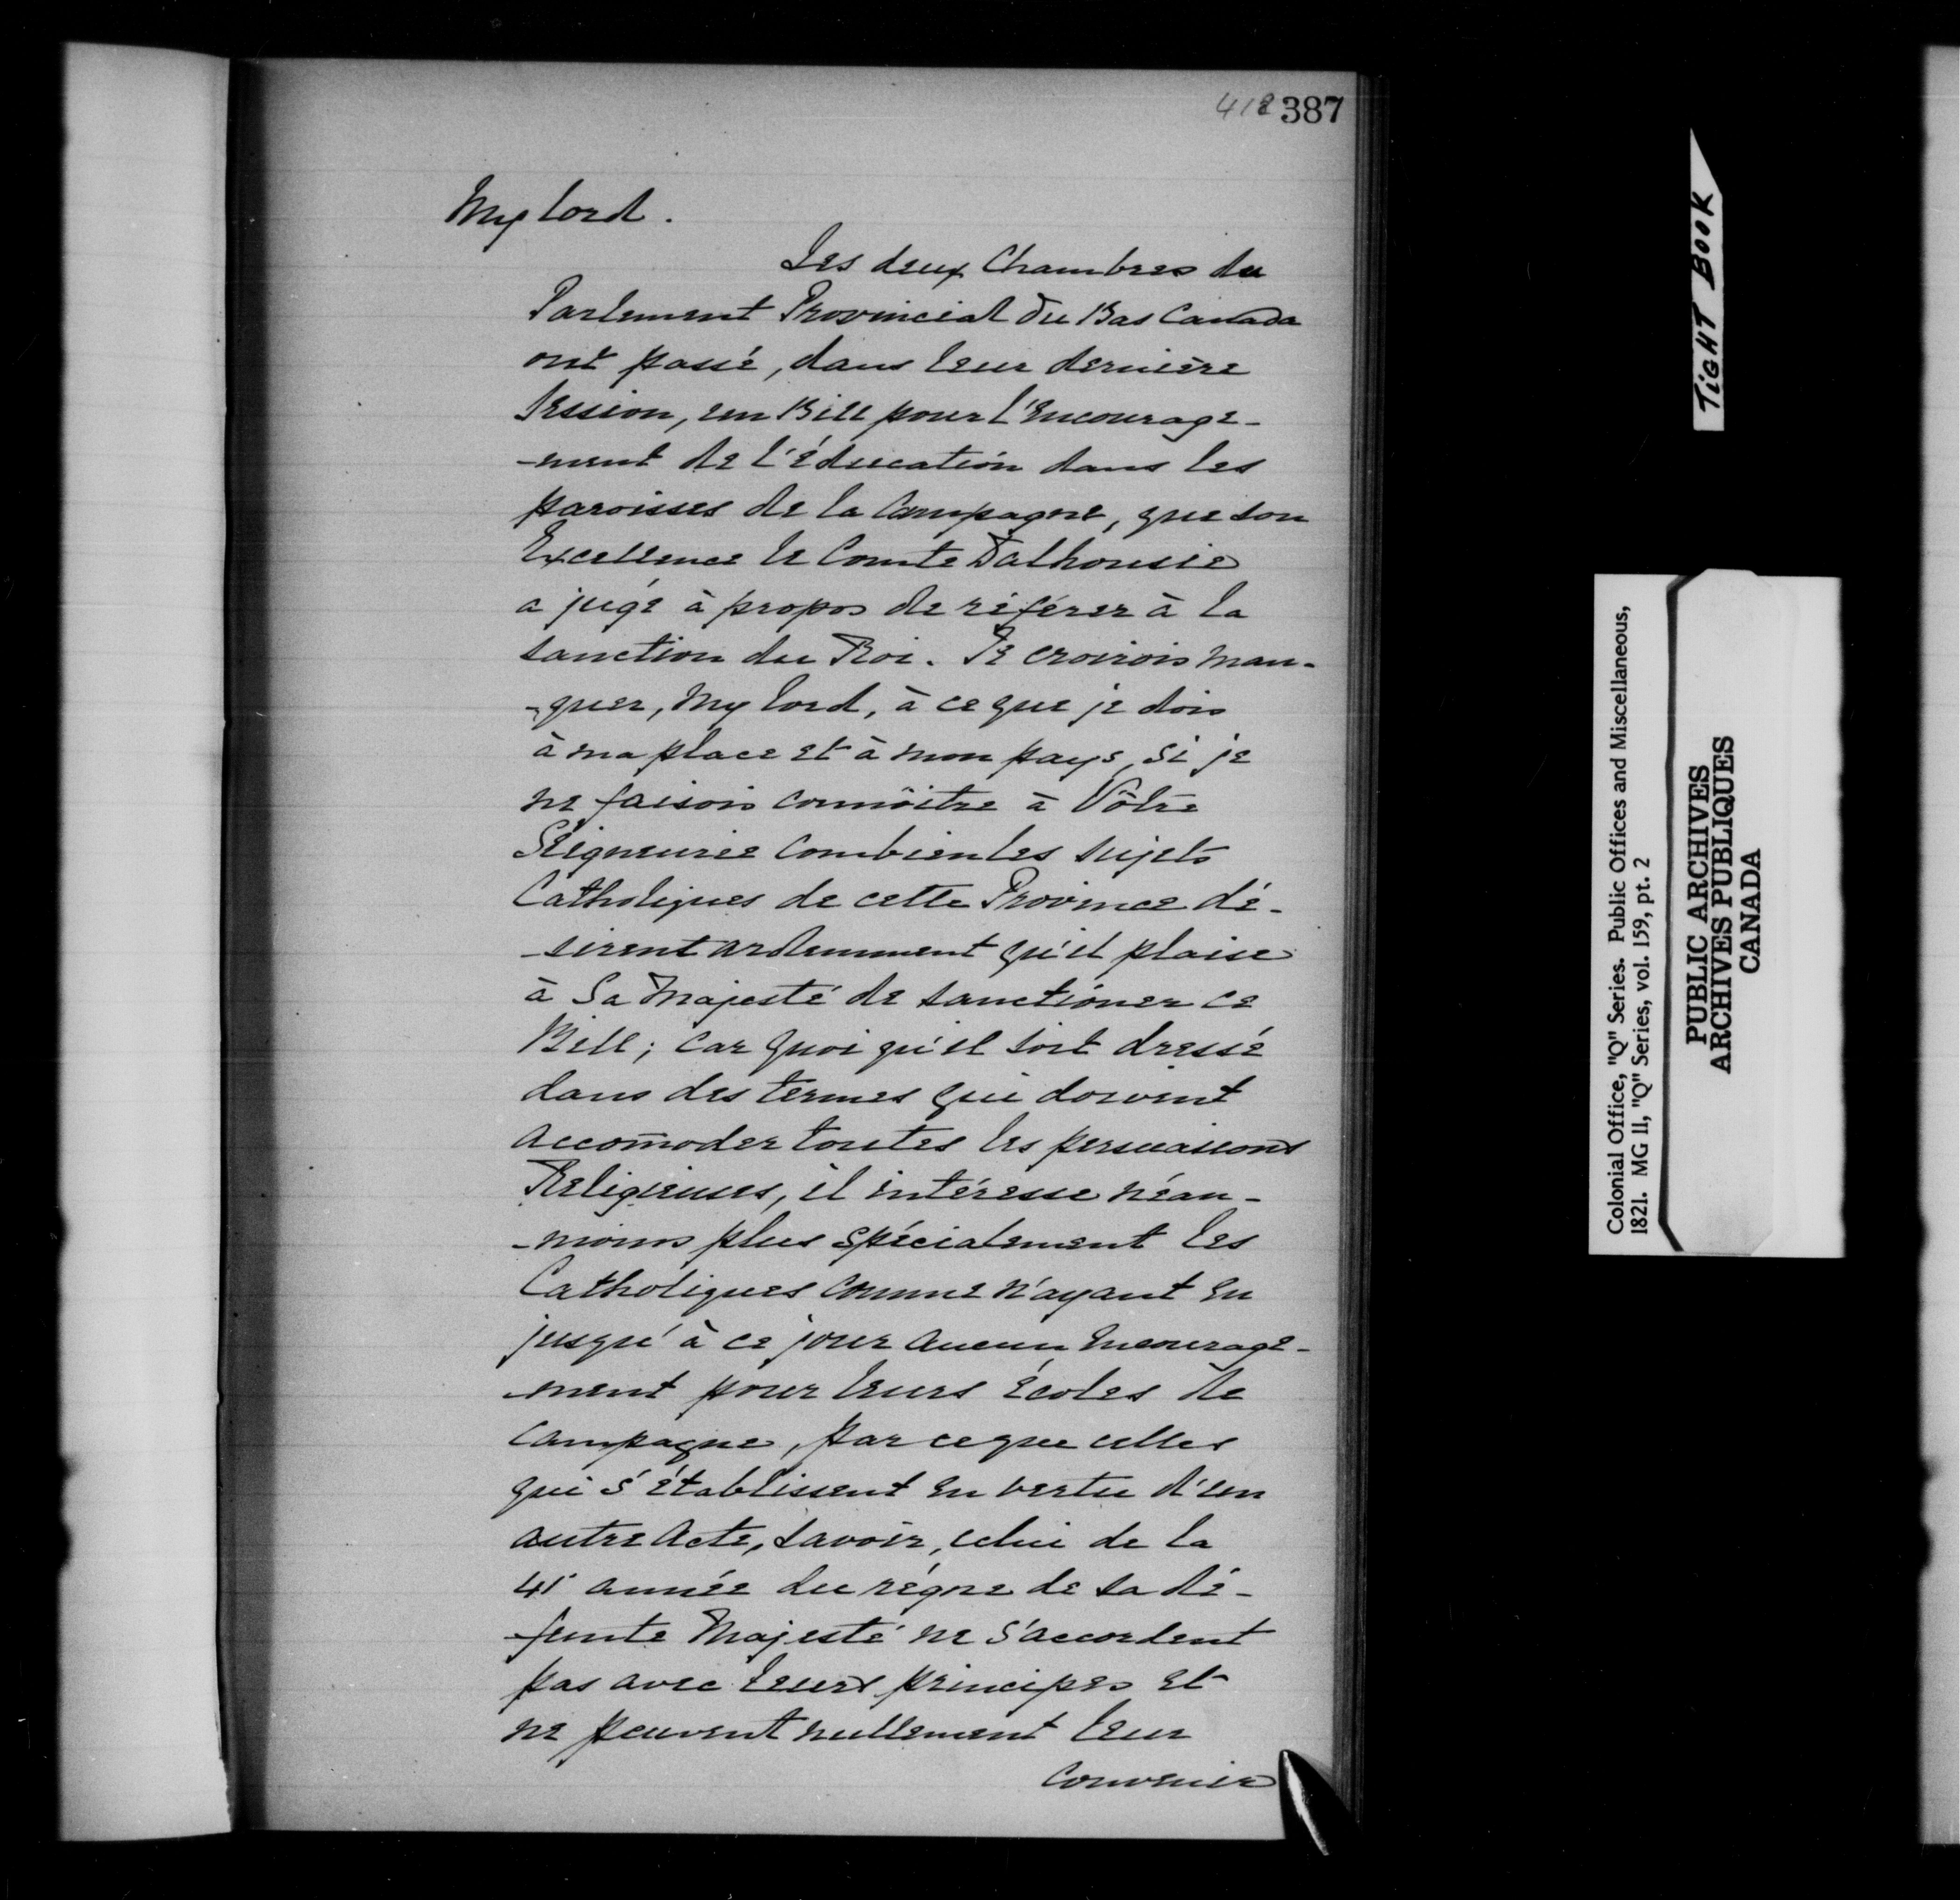 418 387
My lord.
Les deux Chambres du
Parlement Provincial du Bas Canada
ont passé, dans leur dernière
Session, un Bill pour l'Encourage-
-ment de l'éducation dans les
paroisses de la Campagne, que son
Excellence le Comte Dalhousie
a jugé à propos de référer à la
sanction du Roi. Je croirois man-
-quer, My lord, à ce que je dois
à ma place et à mon pays, si je
ne faisois connôitre à Vôtre
Seigneurie combien les sujets
Catholiques de cette Province dé-
-sirent ardemment qu'il plaise
à Sa Majesté de sanctioner ce
Bill; car quoi qu'il soit dressé
dans des termes qui doivent
accom̄oder toutes les persuasions
Religieuses, il intéresse néan-
-moins plus spécialement les
Catholiques comme n'ayant eu
jusqu'à ce jour aucun encourage-
-ment pour leurs écoles de
campagne, par ce que celles
qui s'établissent en vertu d'un
autre Acte, savoir, celui de la
41e année du règne de sa dé-
-funte Majesté ne s'accordent
pas avec leurs principes et
ne peuvent nullement leur
convenir
TIGHT BOOK
Colonial Office, "Q" Series. Public Offices and Miscellaneous,
1821. MG 11, "Q" Series, vol. 159, pt. 2
PUBLIC ARCHIVES
ARCHIVES PUBLIQUES
CANADA